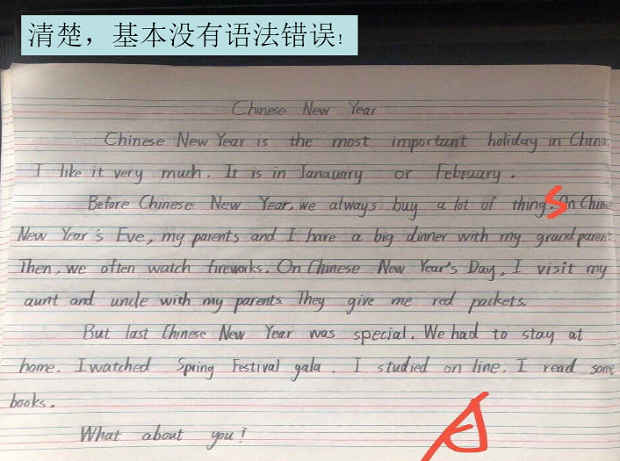 清楚，基本没有语法错误！
Chinese New Year
Chinese New Year is the most important holiday in China
I like it very much. It is in Janauary or February.
Before Chinese New Year, we always buy a lot of things. On Chine
New Year's Eve, my parents and I have a big dinner with my grandparen
Then, we often watch fireworks. On Chinese New Year's Day, I visit my
aunt and uncle with my parents. They give me red packets.
But last Chinese New Year was special. We had to stay at
home. I watched Spring Festival gala. I studied on line. I read some
books.
What about you!
A